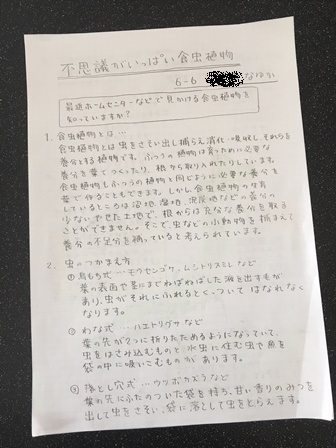 不思議がいっぱい食虫植物
6-6 なゆか
最近ホームセンターなどで見かける食虫植物を
知っていますか?
1. 食虫植物とは…
食虫植物とは虫をさそい出し捕らえ消化・吸収し、それらを
養分とする植物です。ふつうの植物は育つために必要な
養分を葉でつくったり、根から取り入れたりしています。
食虫植物もふつうの植物と同じように必要な養分を
葉で作ることもできます。しかし、食虫植物の生育
しているところは沼地、湿地、泥炭地などの養分の
少ないやせた土地で、根からは充分な養分を取る
ことができません。そこで、虫などの小動物を捕まえて
養分の不足分を補っていると考えられています。
2. 虫のつかまえ方
①鳥もち式…モウセンゴケ、ムシトリスミレなど
葉の表面や茎にまでねばねばした液を出す毛が
あり、虫がそれにふれるとくっついてはなれなく
なります。
②わな式…ハエトリグサなど
葉の先が2つに折りたためるようになっていて、
虫をはさみ込むものと、水虫に住む虫や魚を
袋の中に吸いこむものがあります。
③落とし穴式…ウツボカズラなど
葉の先にふたのついた袋を持ち、甘い香りのみつを
出して虫をさそい、袋に落として虫をとらえます。